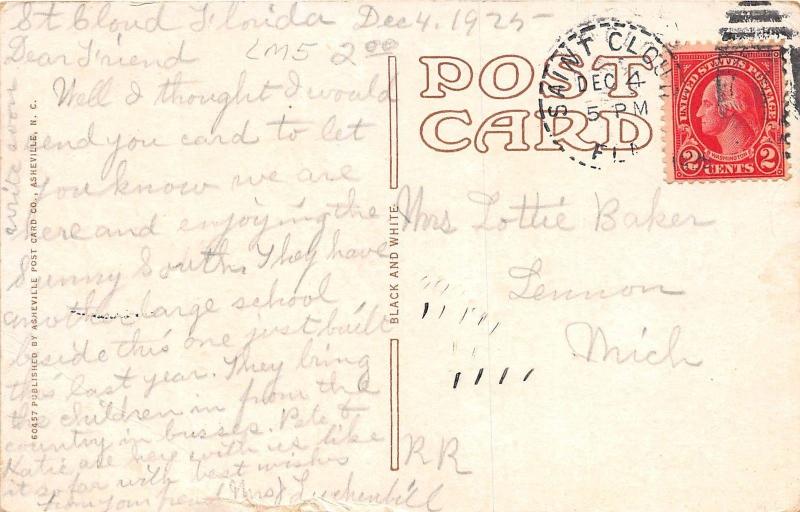 St Cloud Florida Dec 4. 1925-
Dear Friend
LM5 2 00
Well I thought I would
send you card to let
you know we are
here and enjoying the
Sunny South. They have
another large school
beside this one just built
this last year. They bring
the children in from the
country in busses. Pete &
Katie are hey with us like
it so far with best wishes
from your friend Mrs J
write soon
60457 PUBLISHED BY ASHEVILLE POST CARD CO., ASHEVILLE, N. C.
BLACK AND WHITE
POST
CARD
SAINT CLOUD
DEC 4
5 PM
FLA
UNITED STATES POSTAGE
WASHINGTON
2 CENTS 2
Mrs Lottie Baker
Lennon
Mich
RR